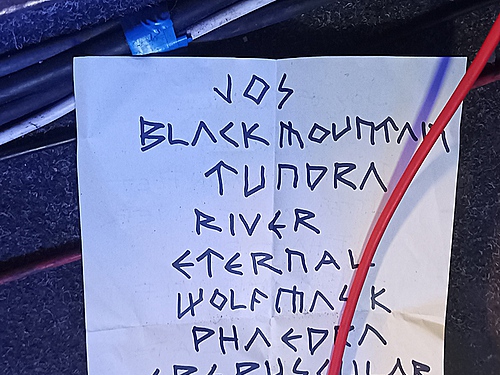 JOS
BLACK MOUNTAIN
TUNDRA
RIVER
ETERNAL
WOLFMASK
PHAEDRA
CREPUSCULAR